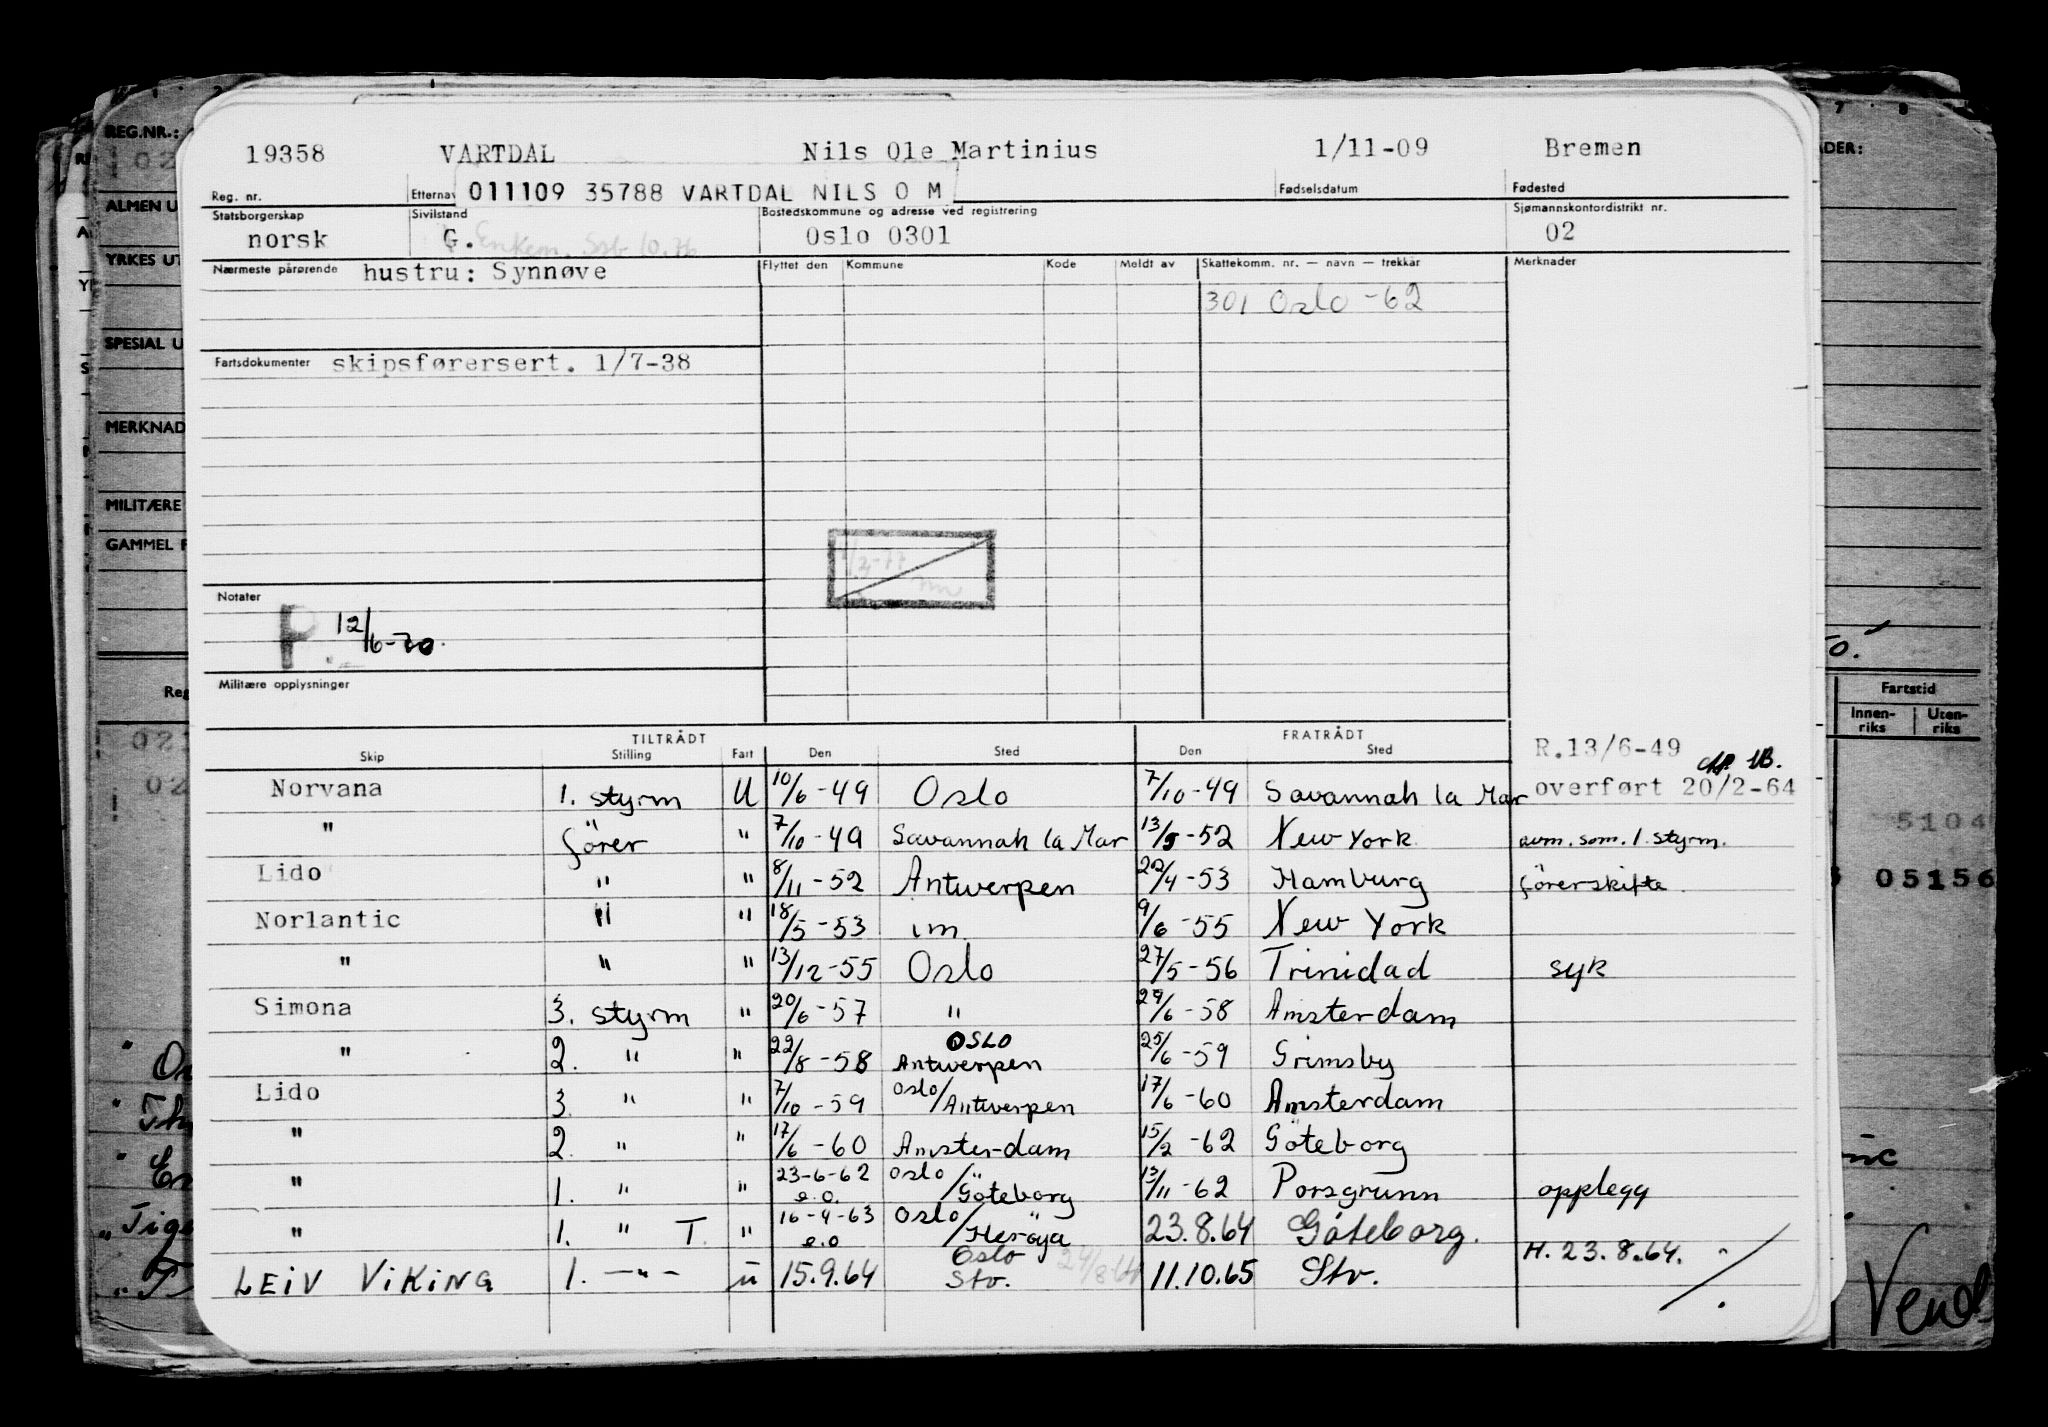 19358 VARTDAL Nils Ole Martinius 1/11-09 Bremen
Reg. nr. Etternav 011109 35788 VARTDAL NILS O M Fødselsdatum Fødested
Statsborgerskap Sivilstand Bostedskommune og adresse ved registrering Sjømannskontordistrikt nr.
norsk G. Oslo 0301 02
Nærmeste pårørende hustru: Synnøve Flyttet den Kommune Kode Meldt av Skattekomm. nr. — navn — trekkår Merknader
301 Oslo -62
Fartsdokumenter skipsførersert. 1/7-38
Notater
P 12/6-70.
Militære opplysninger
TILTRÅDT FRATRÅDT R.13/6-49
Skip Stilling Fart Den Sted Den Sted
Norvana 1. styrm U 10/6-49 Oslo 7/10-49 Savannah la Mar overført 20/2-64
" förer " 7/10-49 Savannah la Mar 13/5-52 New York avm. som. 1. styrm.
Lido " " 8/11-52 Antwerpen 22/4-53 Hamburg förerskifte
Norlantic " " 18/5-53 im. 9/6-55 New York
" " " 13/12-55 Oslo 27/5-56 Trinidad syk
Simona 3. styrm " 20/6-57 " 27/6-58 Amsterdam
" 2. " " 22/8-58 OSLO Antwerpen 25/6-59 Grimsby
Lido 3 " " 7/10-59 Oslo/Antwerpen 17/6-60 Amsterdam
" 2. " " 17/6-60 Amsterdam 15/2-62 Göteborg
" 1. " " 23-6-62 e.o. Oslo/Göteborg 13/11-62 Porsgrunn opplegg
" 1. " T. " 16-4-63 e.o Oslo/Heröya 23.8.64 Göteborg. H. 23.8.64.
LEIV VIKING 1. —"— ü 15.9.64 Oslo Stv. 24/8.64 11.10.65 Stv.
REG.NR.:
ALMEN U
YRKES UT
SPESIAL U
MERKNAD
MILITÆRE
GAMMEL F
Reg
02
02
7 8
ADER:
Fartstid
Innen-riks Uten-riks
5104
05156
Vend